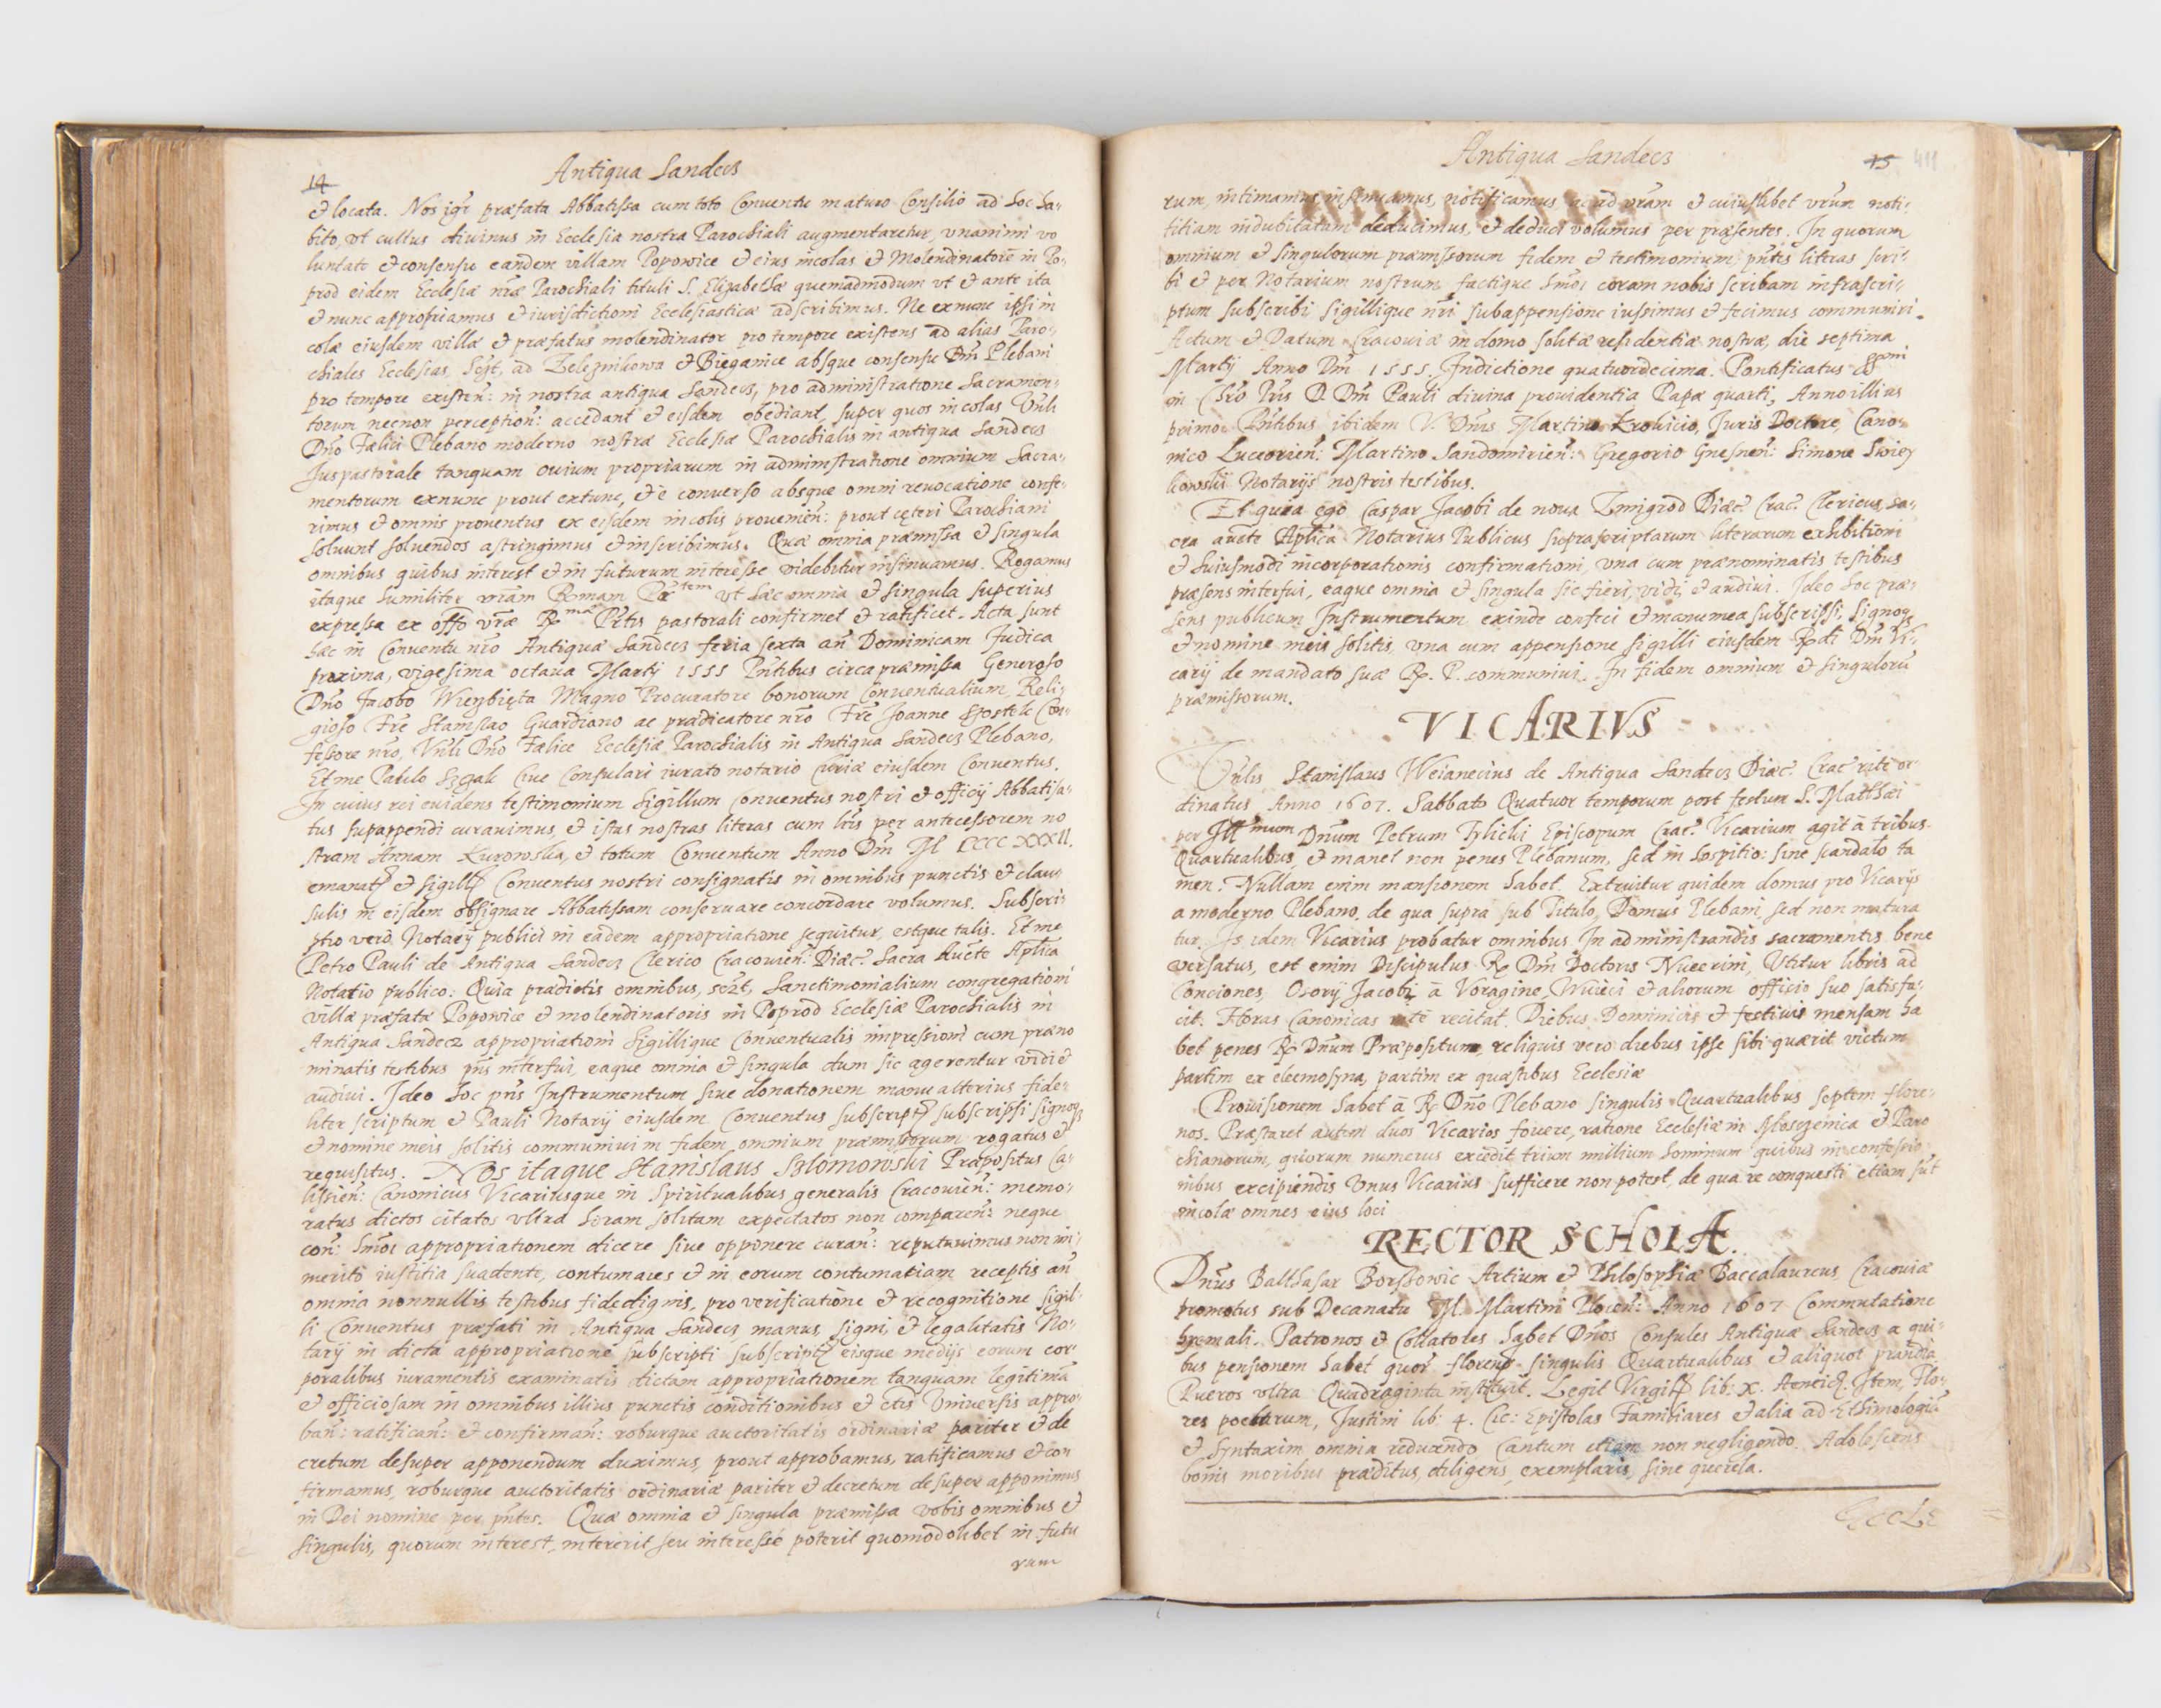 14
Antiqua Sandecz
& locata. Nos igr præfata Abbatissa cum toto Conventu maturo Consilio ad hoc ha-
bito, vt cultus diuinus in Ecclesia nostra Parochiali augmentaretur, vnanimi vo
luntate & consensu eandem villam Popowice & eius incolas & Molendinatorē in Po-
prod eidem Ecclesiæ nr̄æ Parochiali tituli S. Elizabethæ quemadmodum vt & ante ita
& nunc appropriamus & iurisdictioni Ecclesiasticæ adscribimus. Ne ex nunc ipsi in
colæ eiusdem villæ & præfatus molendinator pro tempore existens ad alias Paro-
chiales Ecclesias, ad Zeleznikowa & Bieganice absque consensu Dm̄ Plebani
pro tempore existen̄: in nostra antiqua Sandecz, pro administratione Sacramen-
torum necnon perception̄: accedant & eisdem obediant, super quos incolas Vn̄li
Dn̄o Fælici Plebano moderno nostræ Ecclesiæ Parochialis in antiqua Sandecz
Jus pastorale tanquam ouium propriarum in administratione omnium Sacra-
mentorum exnunc prout extunc, & è conuerso absque omni reuocatione confe-
rimus & omnis prouentus ex eisdem incolis prouenien̄: prout cęteri Parochiani
soluunt soluendos astringimus & inscribimus. Quæ omnia præmissa & singula
omnibus quibus interest & in futurum interesse videbitur insinuamus. Rogamus
itaque humiliter vr̄am Rmam Ptem vt hæc omnia & singula superius
expressa ex offō vr̄æ Rmæ Ptis pastorali confirmet & ratificet. Acta sunt
hæc in Conuentu nr̄o Antiquæ Sandecz feria sexta an̄ Dominicam Judica
proxima, vigesima octaua Martij 1555 Pn̄tibus circa præmissa Generoso
Dn̄o Jacobo Wierzbięta Magno Procuratore bonorum Conuentualium, Reli-
gioso Fr̄e Stanislao Guardiano ac prædicatore nr̄o Fr̄e Joanne Con-
fessore nr̄o, Vn̄li Dn̄o Fælice Ecclesiæ Parochialis in Antiqua Sandecz Plebano,
Et me Paulo Szczali Ciue Consulari iurato notario Curiæ eiusdem Conuentus.
In cuius rei euidens testimonium Sigillum Conuentus nostri & officij Abbatisa-
tus supappendi curauimus, & istas nostras literas cum lr̄is per antecessorem no
stram Annam Kurowska, & totum Conuentum Anno Dm̄ M CCCC XXXII.
emanat & sigill Conuentus nostri consignatis in omnibus punctis & clau-
sulis in eisdem obsignare Abbatissam conseruare concordare volumus. Subscri-
ptio verò Notarij publici in eadem appropriatione sequitur, estque talis. Et me
Petro Pauli de Antiqua Sandecz Clerico Cracouien̄: Diæc. Sacra Auc̄te Aplīca
Notario publico: Quia prædictis omnibus, Sanctimonialium congregationi
villæ præfatæ Popowice & molendinatoris in Poprod Ecclesiæ Parochialis in
Antiqua Sandecz appropriationi Sigillique Conuentualis impressioni cum præno
minatis testibus pn̄s interfui, eaque omnia & singula dum sic agerentur vidi &
audiui. Ideo hoc pn̄s Instrumentum siue donationem manu alterius fide-
liter scriptum & Pauli Notarij eiusdem Conuentus subscript subscripsi signoq3
& nomine meis solitis communiui in fidem omnium præmissorum rogatus &
requisitus. Nos itaque Stanislaus Szlomowski Præpositus Ca-
lissien̄: Canonicus Vicariusque in Spiritualibus generalis Cracouien̄: memo-
ratus dictos citatos vltra horam solitam expectatos non comparen̄: neque
con̄: hm̄oi appropriationem dicere siue opponere curan̄: reputauimus non im-
meritò iustitia suadente, contumaces & in eorum contumatiam receptis an̄
omnia nonnullis testibus fidedignis, pro verificatione & recognitione sigil-
li Conuentus præfati in Antiqua Sandecz, manus, signi, & legalitatis No-
tarij in dicta appropriatione subscripti subscript eisque medijs eorum cor-
poralibus iuramentis examinatis dictam appropriationem tanquam legitimā
& officiosam in omnibus illius punctis conditionibus & ctis Vniuersis appro-
ban̄: ratifican̄: & confirman̄: roburque auctoritatis ordinariæ pariter & de
cretum desuper apponendum duximus, prout approbamus, ratificamus & con
firmamus, roburque auctoritatis ordinariæ pariter & decretum desuper apponimus
in Dei nomine per pn̄tes. Quæ omnia & singula præmissa vobis omnibus &
singulis, quorum interest, intererit seu interesse poterit quomodolibet in futu
rum
Antiqua Sandecz
15 411
rum, intimamus, insinuamus, notificamus, ac ad vr̄am & cuiuslibet vr̄um noti-
titiam indubitatam deducimus, & deduci volumus per præsentes. In quorum
omnium & singulorum præmissorum fidem & testimonium pn̄tes literas scri-
bi & per Notarium nostrum, factique hm̄oi coram nobis scribam infrascri-
ptum subscribi sigillique nr̄i subappensione iussimus & fecimus communiri.
Actum & Datum Cracouiæ in domo solitæ residentiæ nostræ, die septima
Martij Anno Dm̄ 1555. Indictione quatuordecima. Pontificatus SSmi
in Chr̄o Pr̄is D. Dm̄ Pauli diuina prouidentia Papæ quarti, Anno illius
primo. Pn̄tibus ibidem V. Dn̄is Martino Krokicio, Juris Doctore, Cano-
nico Luceorien̄: Martino Sandomirien̄: Gregorio Gnesnen̄: Simone
Notarijs nostris testibus.
Et quia ego Caspar Jacobi de noua Zmigrod Diæc. Crac. Clericus, Sa-
cra auc̄te Aplīca Notarius Publicus suprascriptarum literarum exhibitioni
& huiusmodi incorporationis confirmationi, vna cum prænominatis testibus
præsens interfui, eaque omnia & singula sic fieri, vidi, & audiui. Ideo hoc præ-
sens publicum Instrumentum exinde confeci & manu mea subscripsi, signoq3
& nomine meis solitis, vna cum appensione sigilli eiusdem Rdi Dm̄ Vi-
carij de mandato suæ R. P. communiui. In fidem omnium & singulorū
præmissorum.
VICARIVS
Vn̄lis Stanislaus Weianecius de Antiqua Sandecz Diæc. Crac. ritè or-
dinatus, Anno 1607. Sabbato Quatuor temporum post festum S. Matthæi
per Illmum Dn̄um Petrum Tylicki Episcopum Crac. Vicarium agit à tribus
Quartualibus, & manet non penes Plebanum, sed in hospitio: sine scandalo ta
men. Nullam enim mansionem habet. Extruitur quidem domus pro Vicarijs
a moderno Plebano, de qua supra sub Titulo, Domus Plebani, sed non matura
tur. Is idem Vicarius probatur omnibus. In administrandis sacramentis bene
versatus, est enim Discipulus R. Dm̄ Doctoris Nucerini, Vtitur libris ad
Conciones, Osorij Jacobi à Voragine, Wuieci & aliorum officio suo satisfa-
cit. Horas Canonicas ritè recitat. Diebus Dominicis & festiuis mensam ha
bet penes R. Dn̄um Præpositum, reliquis verò diebus ipse sibi quærit victum
partim ex eleemosyna, partim ex quæstibus Ecclesiæ
Prouisionem habet à R. Dn̄o Plebano singulis Quartualibus septem flore-
nos. Præstaret autem duos Vicarios fouere, ratione Ecclesiæ in Mosczenica & Paro
chianorum, quorum numerus excedit trium millium hominum quibus in confessio-
nibus excipiendis Vnus Vicarius sufficere non potest, de qua re conquesti etiam sūt
incolæ omnes eius loci
RECTOR SCHOLÆ.
Dn̄us Balthasar Borszowic Artium & Philosophiæ Baccalaureus, Cracouiæ
promotus sub Decanatu M. Martini Anno 1607 Commutatione
hyemali. Patronos & Collatores habet Dn̄os Consules Antiquæ Sandecz a qui-
bus pensionem habet quor florenos singulis Quartualibus & aliquot prandia.
Pueros vltra Quadraginta instituit. Legit Virgil lib: X. Aeneid. Item, Flo-
res poetarum, Justini lib: 4. Cic: Epistolas Familiares & alia ad Ethimologiā
& Syntaxim omnia reducendo, Cantum etiam non negligendo. Adolescens
bonis moribus præditus, diligens, exemplaris, sine querela.
Eccle